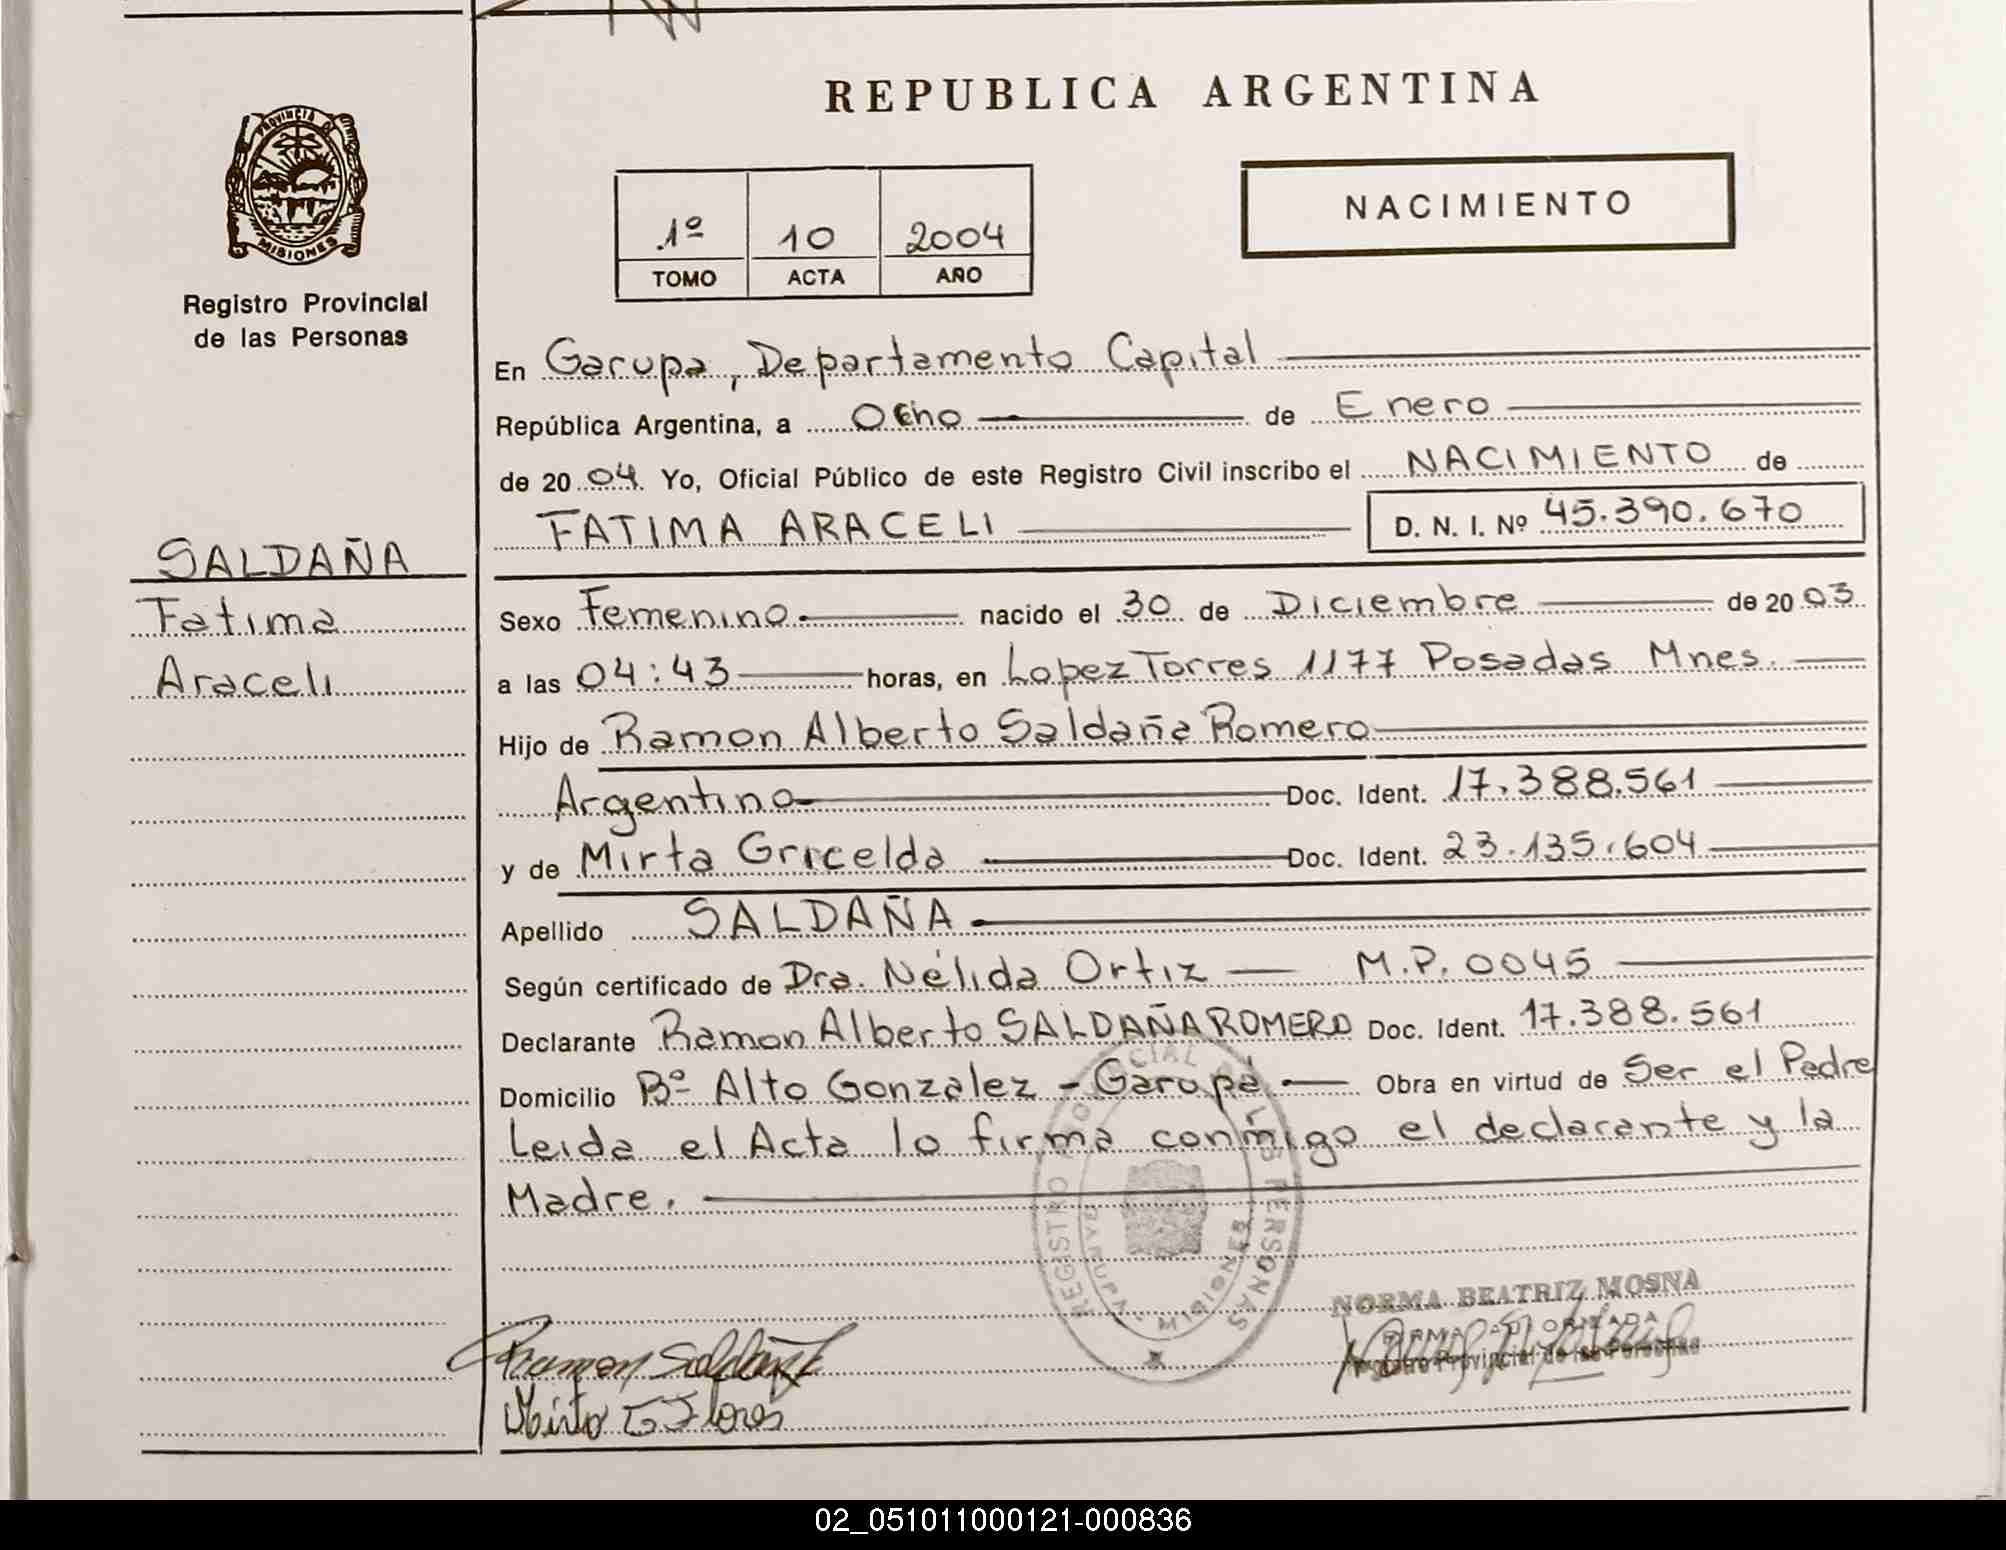 REPUBLICA ARGENTINA
PROVINCIA DE
MISIONES
Registro Provincial
de las Personas
1º 10 2004
TOMO ACTA AÑO
NACIMIENTO
En Garupa, Departamento Capital
República Argentina, a Ocho de Enero
de 20 04 Yo, Oficial Público de este Registro Civil inscribo el NACIMIENTO de
FATIMA ARACELI D. N. I. Nº 45.390.670
SALDAÑA
Fatima
Araceli
Sexo Femenino nacido el 30 de Diciembre de 20 03
a las 04:43 horas, en Lopez Torres 1177 Posadas Mnes.
Hijo de Ramon Alberto Saldaña Romero
Argentino Doc. Ident. 17.388.561
y de Mirta Gricelda Doc. Ident. 23.135.604
Apellido SALDAÑA
Según certificado de Dra. Nélida Ortiz — M.P. 0045
Declarante Ramon Alberto SALDAÑA ROMERO Doc. Ident. 17.388.561
Domicilio Bº Alto Gonzalez - Garupá Obra en virtud de Ser el Padre
Leida el Acta lo firma conmigo el declarante y la
Madre.
REGISTRO PERSONAS
MISIONES
NORMA BEATRIZ MOSNA
FIRMA AUTORIZADA
Registro Provincial de las Personas
Ramon Saldaña
Mirta G Flores
02_051011000121-000836